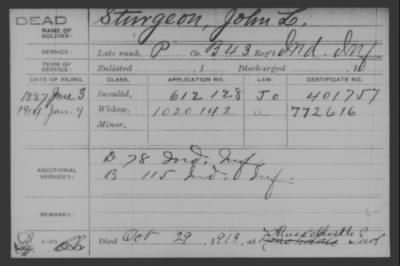 DEAD
NAME OF SOLDIER: Sturgeon, John L.
SERVICE: Late rank, P Co. B 43 Reg't Ind. Inf
TERM OF SERVICE: Enlisted , 1 Discharged , 1
DATE OF FILING. CLASS. APPLICATION NO. LAW CERTIFICATE NO.
1887 June 3 Invalid, 612128 401757
1914 Jan. 9 Widow, 1020142 772616
Minor,
ADDITIONAL SERVICES: D 78 Ind. Inf.
B 115 Ind. Inf.
REMARKS:
Died Oct 29, 1913, at Russellville Ind